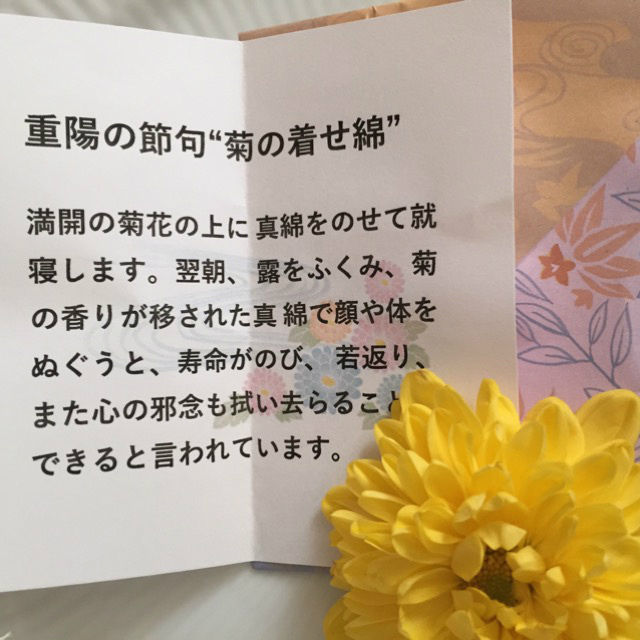 重陽の節句“菊の着せ綿”
満開の菊花の上に真綿をのせて就
寝します。翌朝、露をふくみ、菊
の香りが移された真綿で顔や体を
ぬぐうと、寿命がのび、若返り、
また心の邪念も拭い去らること
できると言われています。